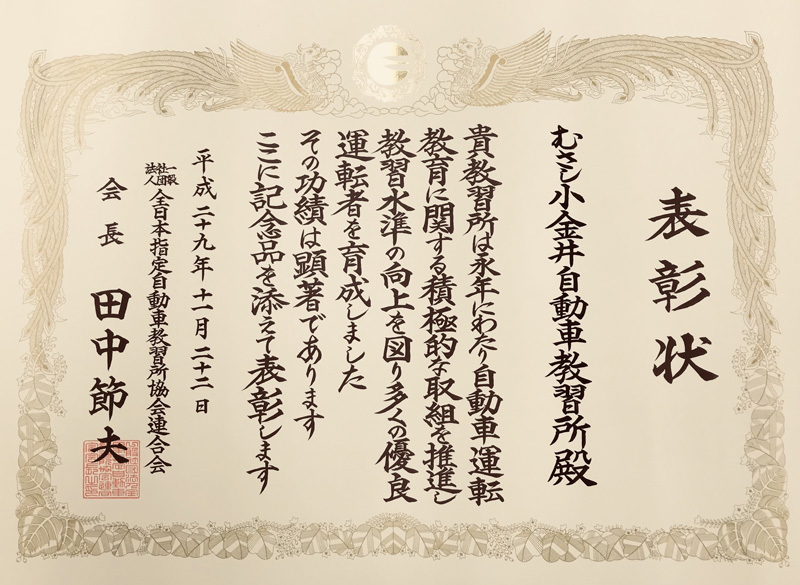 表彰状
むさし小金井自動車教習所殿
貴教習所は永年にわたり自動車運転
教育に関する積極的な取組を推進し
教習水準の向上を図り多くの優良
運転者を育成しました
その功績は顕著であります
ここに記念品を添えて表彰します
平成二十九年十一月二十二日
一般社団法人全日本指定自動車教習所協会連合会
会長 田中節夫